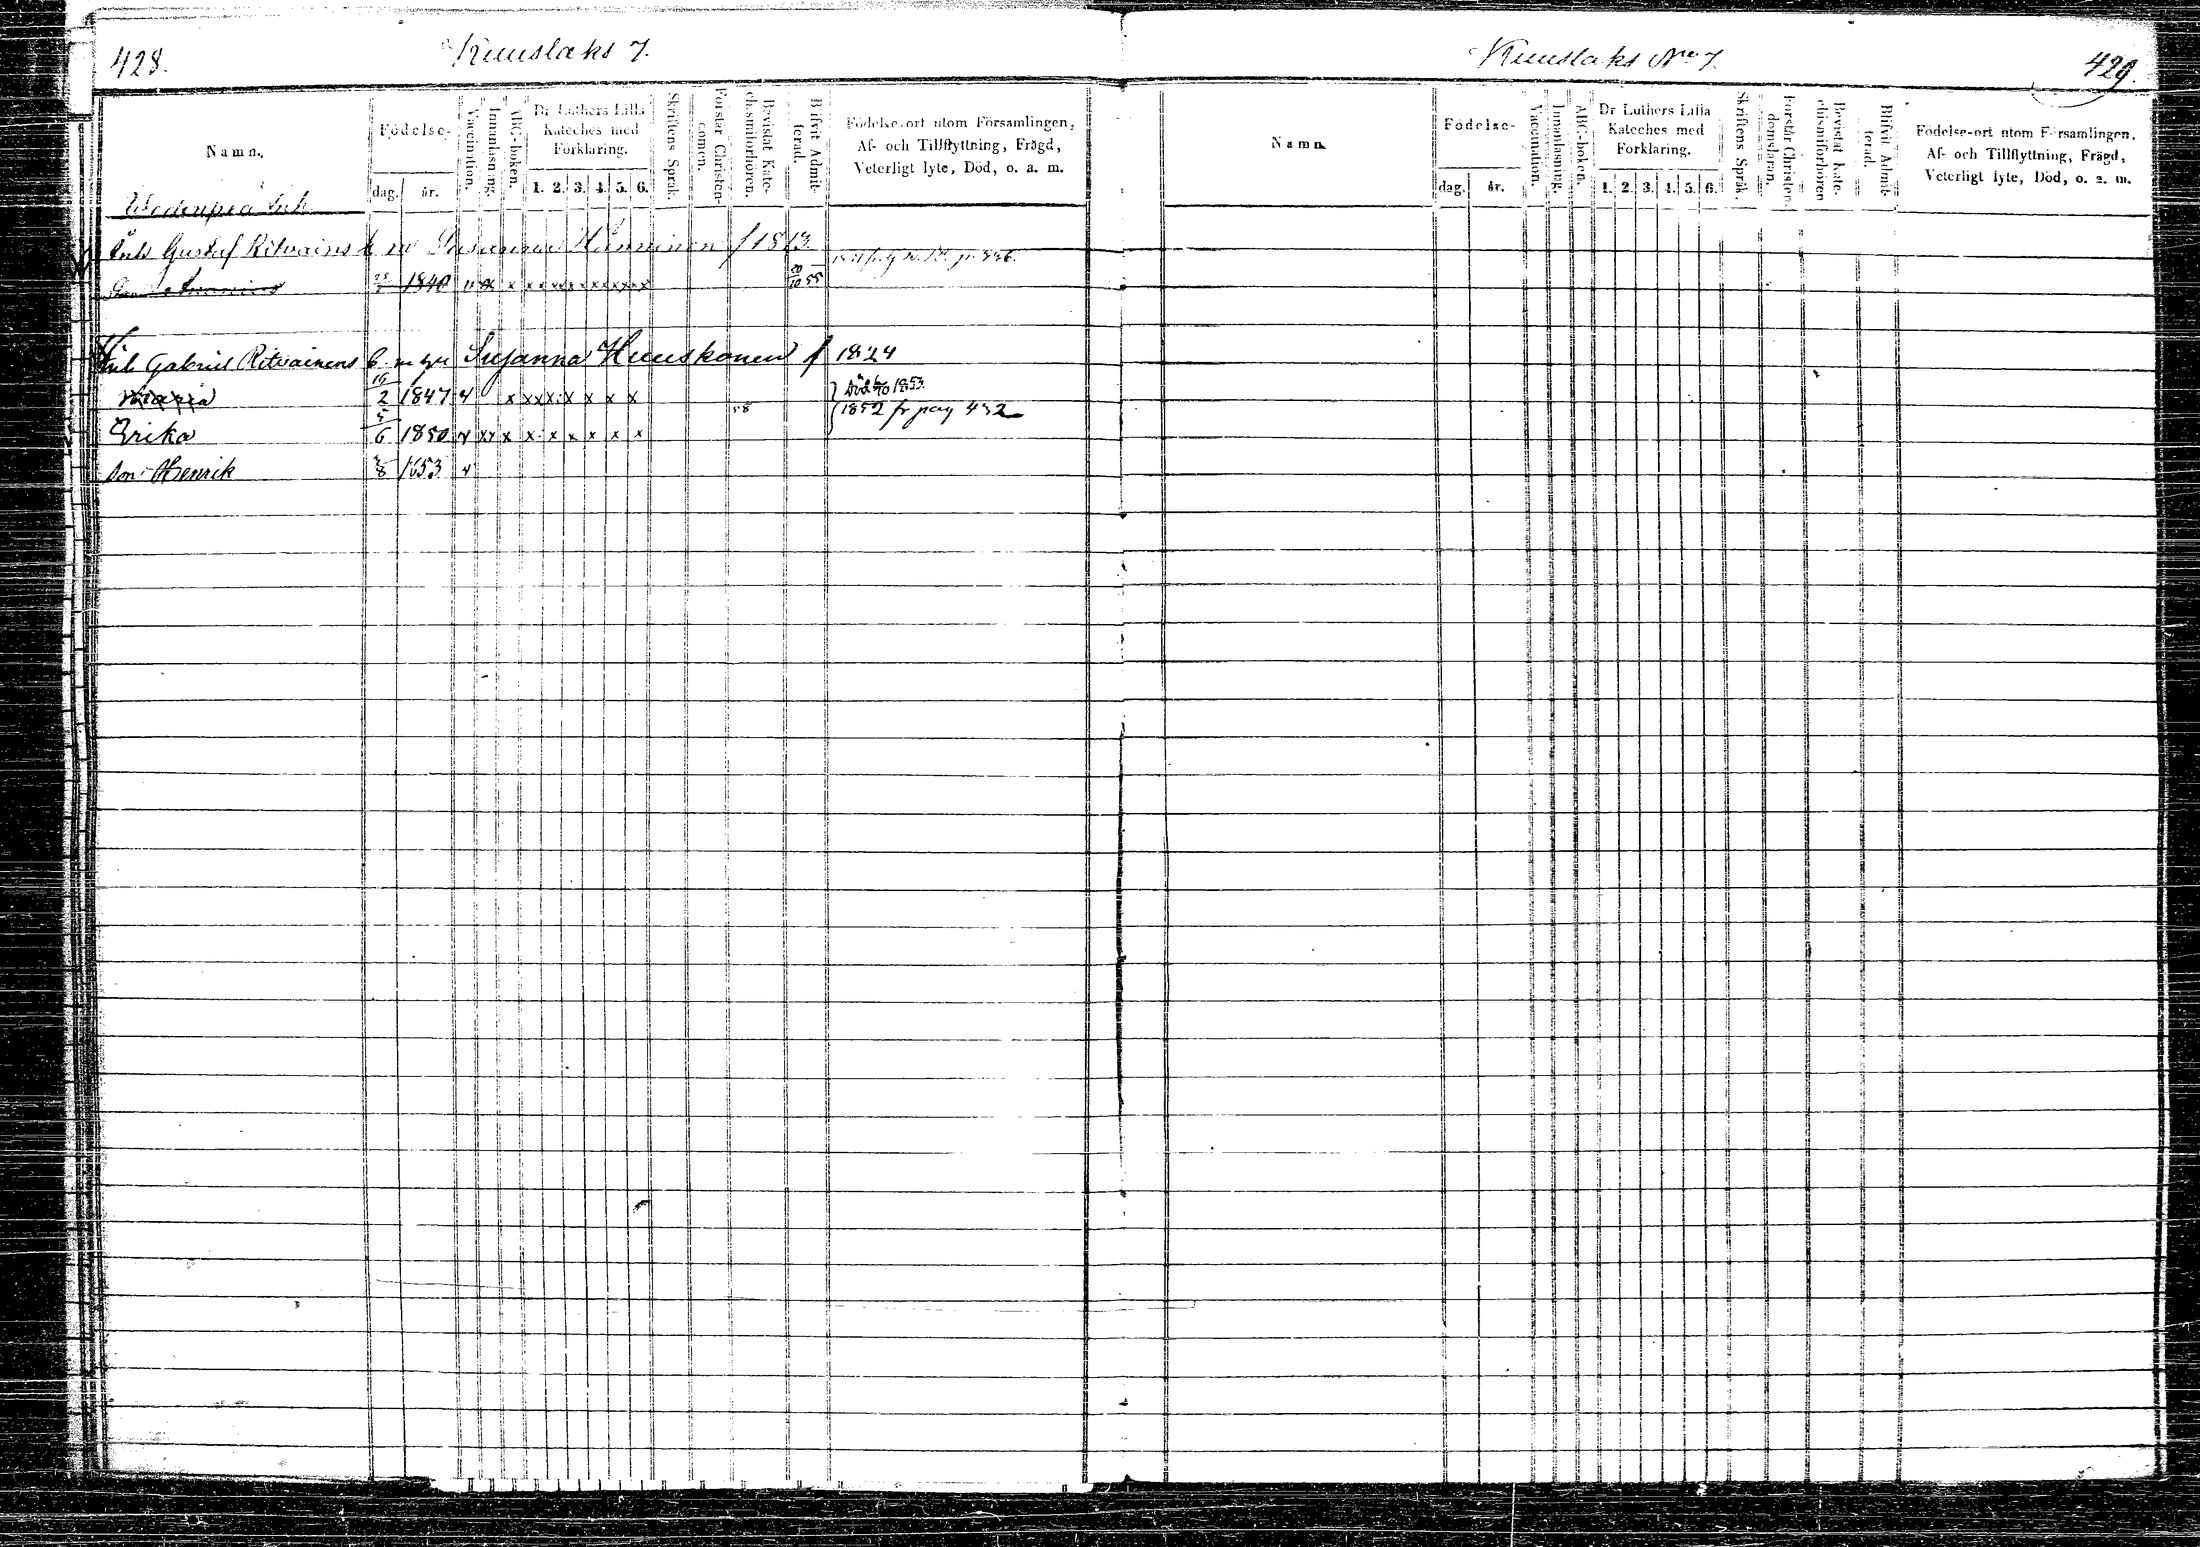 428.
Kuuslaks 7.
Namn.
Födelse-
dag.
år.
Vaccination.
Innanläsning.
ABC-boken.
Dr Luthers Lilla
Kateches med
Förklaring.
1. 2. 3. 4. 5. 6.
Skriftens Språk.
Förstår Christen-
domen.
Bevistat Kate-
chismiförhören.
Blifvit Admit-
terad.
Födelse-ort utom Församlingen,
Af- och Tillflyttning, Frägd,
Veterligt lyte, Död, o. a. m.
Inh Gustaf Ritvainens Susanna Hänninen f 1813.
1840 x x x x x x x x 20/10 55
Inh Gabriel Ritvainens Susanna Huuskonen f 1824
Maria 16/2 1847 v x x x x x x x x Död 1853
58 1852 fr pag 432
Erika 5/6 1850 v xx x x x x x x x
Son Henrik 1853 v
Kuuslaks No 7
429.
Namn.
Födelse-
dag.
år.
Vaccination.
Innanläsning.
ABC-boken.
Dr Luthers Lilla
Kateches med
Förklaring.
1. 2. 3. 4. 5. 6.
Skriftens Språk.
Förstår Christen-
domsläran.
Bevistat Kate-
chismiförhören
Blifvit Admit-
terad.
Födelse-ort utom Församlingen.
Af- och Tillflyttning, Frägd,
Veterligt lyte, Död, o. a. m.